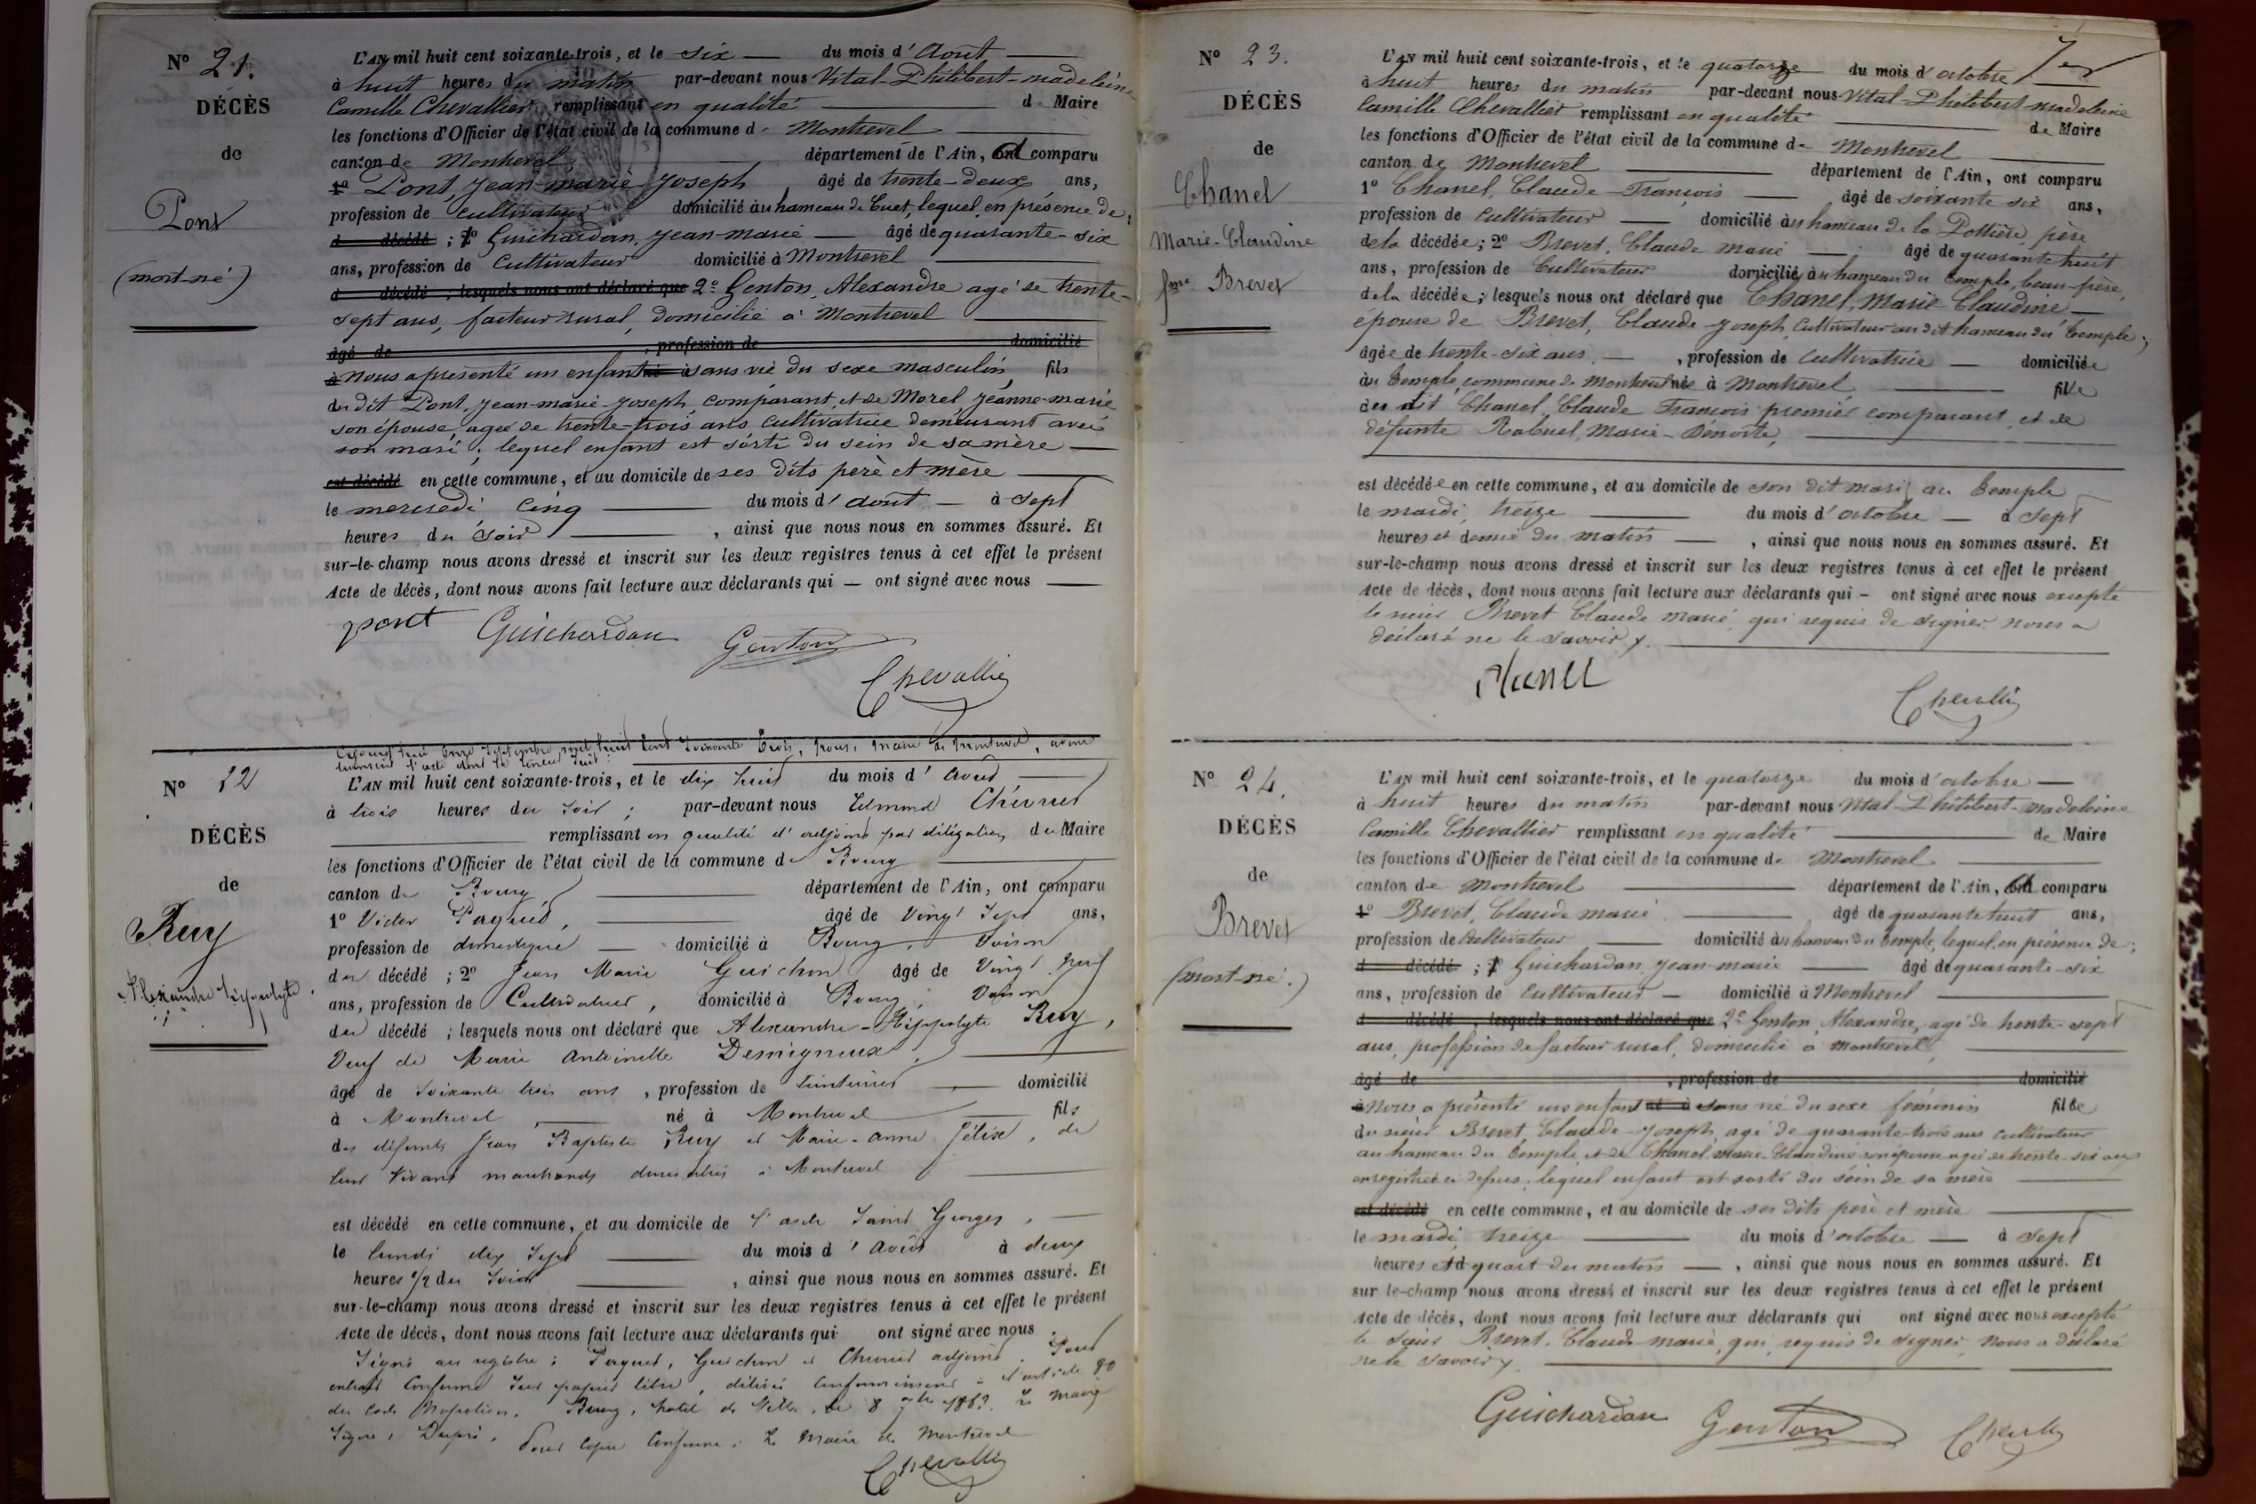 N° 21.
DÉCÈS
de
Pont
(mort-né)
L'AN mil huit cent soixante-trois, et le six du mois d'Août
à huit heures du matin par-devant nous Vital-Philibert-madeleine
Camille Chevallier, remplissant en qualité de Maire
les fonctions d'Officier de l'état civil de la commune de Montrevel
canton de Montrevel département de l'Ain, a comparu
1° Pont, Jean-marie-Joseph âgé de trente-deux ans,
profession de cultivateur domicilié au hameau de Cuet, lequel, en présence de,
d décédé ; 1° Guichardan, Jean-marie âgé de quarante-six
ans, profession de Cultivateur domicilié à Montrevel
d décédé ; lesquels nous ont déclaré que 2° Genton, Alexandre agé de trente-
sept ans, facteur rural, domicilié à Montrevel
âgé de , profession de domicilié
à Nous a présenté un enfant né à sans vie du sexe masculin, fils
du dit Pont, Jean-marie-Joseph, comparant, et de Morel, Jeanne-marie
son épouse, agée de trente-trois ans cultivatrice demeurant avec
son mari ; lequel enfant est sorti du sein de sa mère
est décédé en cette commune, et au domicile de ses dits père et mère
le mercredi cinq du mois d'août à sept
heures du soir , ainsi que nous nous en sommes assuré. Et
sur-le-champ nous avons dressé et inscrit sur les deux registres tenus à cet effet le présent
Acte de décès, dont nous avons fait lecture aux déclarants qui — ont signé avec nous
pont Guichardan Genton
Chevallier
N° 22
DÉCÈS
de
Ruy
Alexandre Hippolyte
Cejourd'hui onze Septembre, mil huit cent soixante trois, nous, maire de Montrevel, avons
transcrit l'acte dont la teneur suit :
L'AN mil huit cent soixante-trois, et le dix huit du mois d'Août
à trois heures du soir ; par-devant nous Edmond
remplissant en qualité d'adjoint par délégation du Maire
les fonctions d'Officier de l'état civil de la commune de Bourg
canton de Bourg département de l'Ain, ont comparu
1° Victor âgé de Vingt Sept ans,
profession de domestique domicilié à Bourg, Voisin
du décédé ; 2° Jean Marie Guichon âgé de Vingt neuf
ans, profession de Cultivateur, domicilié à Bourg, Voisin
du décédé ; lesquels nous ont déclaré que Alexandre-Hippolyte Ruy,
Veuf de Marie Antoinette
âgé de Soixante trois ans, profession de teinturier domicilié
à Montrevel né à Montrevel fils
des défunts Jean Baptiste Ruy et Marie-Anne Félix, de
leur Vivant marchands domiciliés à Montrevel
est décédé en cette commune, et au domicile de l'asile Saint Georges,
le lundi dix Sept du mois d'Août à deux
heures 1/2 du Soir , ainsi que nous nous en sommes assuré. Et
sur-le-champ nous avons dressé et inscrit sur les deux registres tenus à cet effet le présent
Acte de décès, dont nous avons fait lecture aux déclarants qui ont signé avec nous
Signé au registre : Guichon et adjoint. Pour
extrait Conforme Sur papier libre, délivré Conformément à l'article 80
du Code Napoléon. Bourg, hôtel de Ville, le 8 7bre 1863. Le Maire
Signé, Dupré. Pour Copie Conforme : Le Maire de Montrevel
Chevallier
N° 23.
DÉCÈS
de
Chanel
Marie-Claudine
fme Brevet
L'AN mil huit cent soixante-trois, et le quatorze du mois d'octobre
à huit heures du matin par-devant nous Vital-Philibert-madeleine
Camille Chevallier remplissant en qualité de Maire
les fonctions d'Officier de l'état civil de la commune de Montrevel
canton de Montrevel département de l'Ain, ont comparu
1° Chanel, Claude-François âgé de soixante six ans,
profession de cultivateur domicilié au hameau de la Pottière, père
de la décédée ; 2° Brevet, Claude marie âgé de quarante huit
ans, profession de Cultivateur domicilié au hameau du Temple, beau-frère,
de la décédée ; lesquels nous ont déclaré que Chanel, Marie-Claudine
épouse de Brevet, Claude-Joseph, Cultivateur au dit hameau du Temple ;
âgée de trente-six ans , profession de cultivatrice domiciliée
au Temple, commune de Montrevel née à Montrevel fille
du dit Chanel, Claude François premier comparant, et de
défunte Rabuel, Marie-Benoite,
est décédée en cette commune, et au domicile de son dit mari au Temple
le mardi, treize du mois d'octobre à sept
heures et demie du matin , ainsi que nous nous en sommes assuré. Et
sur-le-champ nous avons dressé et inscrit sur les deux registres tenus à cet effet le présent
Acte de décès, dont nous avons fait lecture aux déclarants qui – ont signé avec nous excepté
le sieur Brevet Claude marie, qui requis de signer nous a
déclaré ne le savoir
Chanel
Chevallier
N° 24.
DÉCÈS
de
Brevet
(mort-né.)
L'AN mil huit cent soixante-trois, et le quatorze du mois d'octobre
à huit heures du matin par-devant nous Vital-Philibert-madeleine
Camille Chevallier remplissant en qualité de Maire
les fonctions d'Officier de l'état civil de la commune de Montrevel
canton de Montrevel département de l'Ain, a comparu
1° Brevet, Claude marie âgé de quarante huit ans,
profession de Cultivateur domicilié au hameau du Temple, lequel, en présence de ;
d décédé ; 1° Guichardan, Jean-marie âgé de quarante-six
ans, profession de Cultivateur domicilié à Montrevel
d décédé ; lesquels nous ont déclaré que 2° Genton, Alexandre, agé de trente-sept
ans, profession de facteur rural, domicilié à Montrevel,
âgé de , profession de domicilié
à Nous a présenté un enfant né à sans vie du sexe féminin fille
du sieur Brevet, Claude-Joseph, agé de quarante-trois ans cultivateur
au hameau du Temple et de Chanel, Marie-Claudine son épouse agée de trente-six ans
enregistrée ci dessus ; lequel enfant est sorti du sein de sa mère
est décédé en cette commune, et au domicile de ses dits père et mère
le mardi, treize du mois d'octobre à sept
heures et quart du matin , ainsi que nous nous en sommes assuré. Et
sur-le-champ nous avons dressé et inscrit sur les deux registres tenus à cet effet le présent
Acte de décès, dont nous avons fait lecture aux déclarants qui ont signé avec nous excepté
le sieur Brevet, Claude marie, qui, requis de signer, nous a déclaré
ne le savoir
Guichardan Genton Chevallier